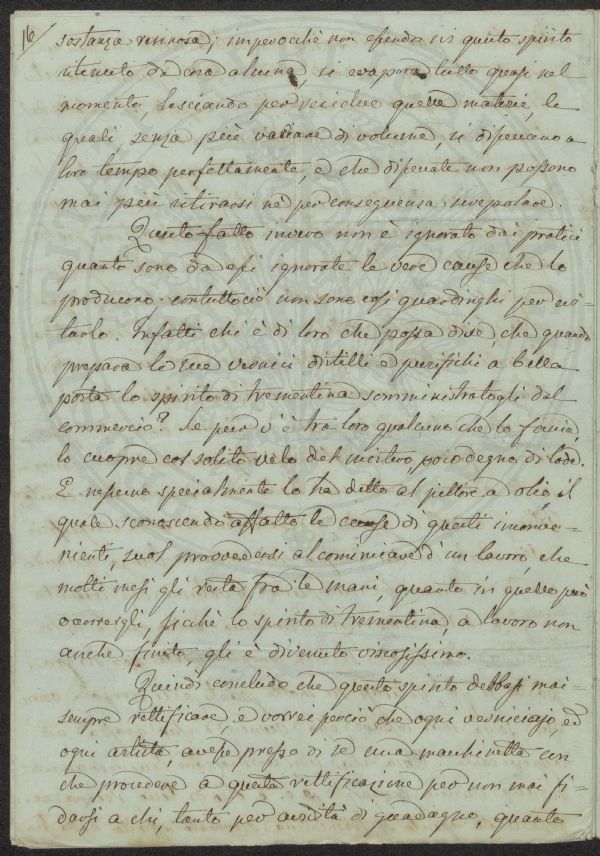 16
sostanza resinosa; imperocchè non essendo in questo spirito
ritenuto da cosa alcuna, si evapora tutto quasi nel
momento, lasciando per recidere quelle materie, le
quali, senza più variare di volume, si disseccano a
loro tempo perfettamente, e che disseccate non possono
mai più ritirarsi nè per conseguenza screpolare.
Questo fatto invero non è ignorato dai pratici
quanto sono da essi ignorate le vere cause che lo
producono: contuttociò non sono così guardinghi per evi-
tarlo. Infatti chi è di loro che possa dire, che quando
prepara le sue vernici distilli e purifichi a bella
posta lo spirito di trementina somministratogli dal
commercio? Se pure v'è tra loro qualcuno che lo faccia,
lo cuopre col solito velo del mistero, poco degno di lode.
E nessuno specialmente lo ha detto al pittore a olio il
quale sconoscendo affatto le cause di questi inconve-
nienti, suol provvedersi al cominciare d'un lavoro, che
molti mesi gli resta fra le mani, quanto in quello può
occorrergli, sichè lo spirito di trementina, a lavoro non
anche finito, gli è divenuto viscosissimo.
Quindi concludo che questo spirito debbasi mai-
sempre rettificare, e vorrei perciò che ogni verniciajo, ed
ogni artista, avesse presso di se una macchinetta con
che procedere a questa rettificazione per non mai fi-
darsi a chi, tanto per avidità di guadagno, quanto